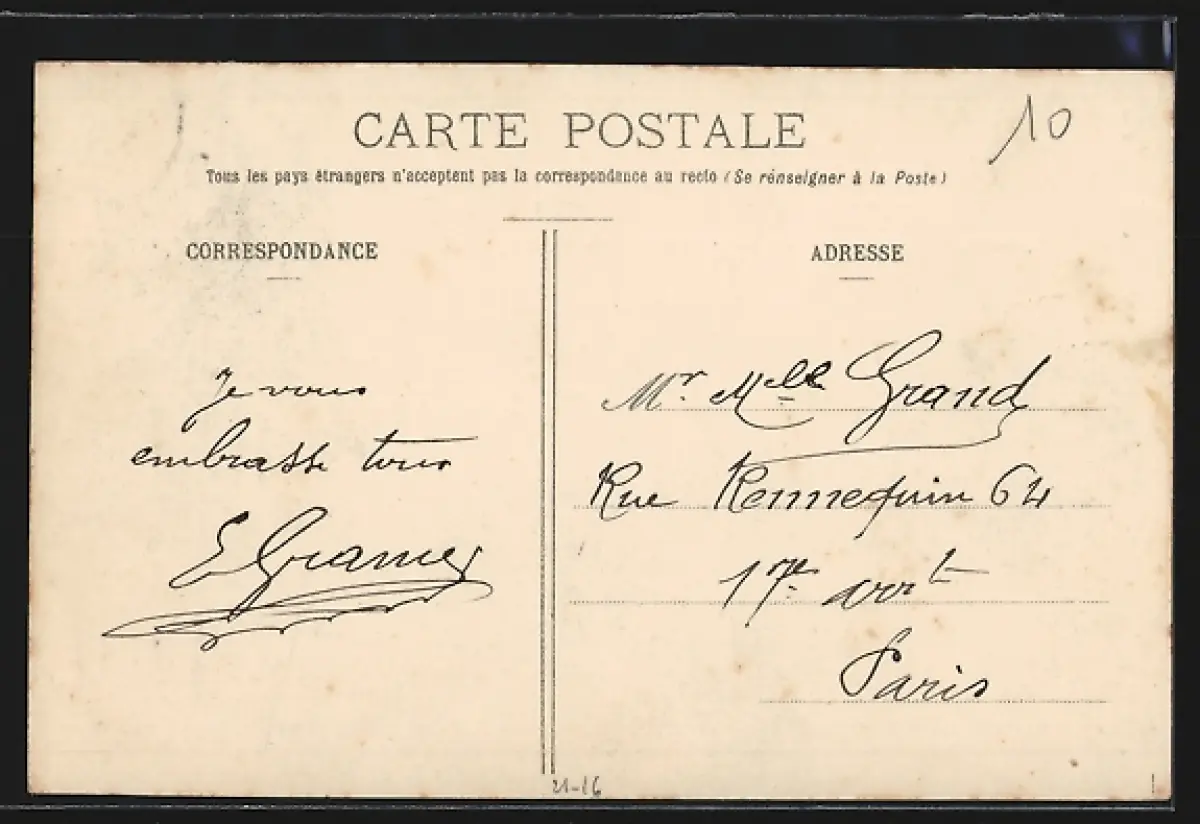 CARTE POSTALE
10
Tous les pays étrangers n'acceptent pas la correspondance au recto (Se renseigner à la Poste)
CORRESPONDANCE
Je vous
embrasse tous
E
ADRESSE
Mr. Melle Grand
Rue Rennequin 64
17e arrt
Paris
21-16